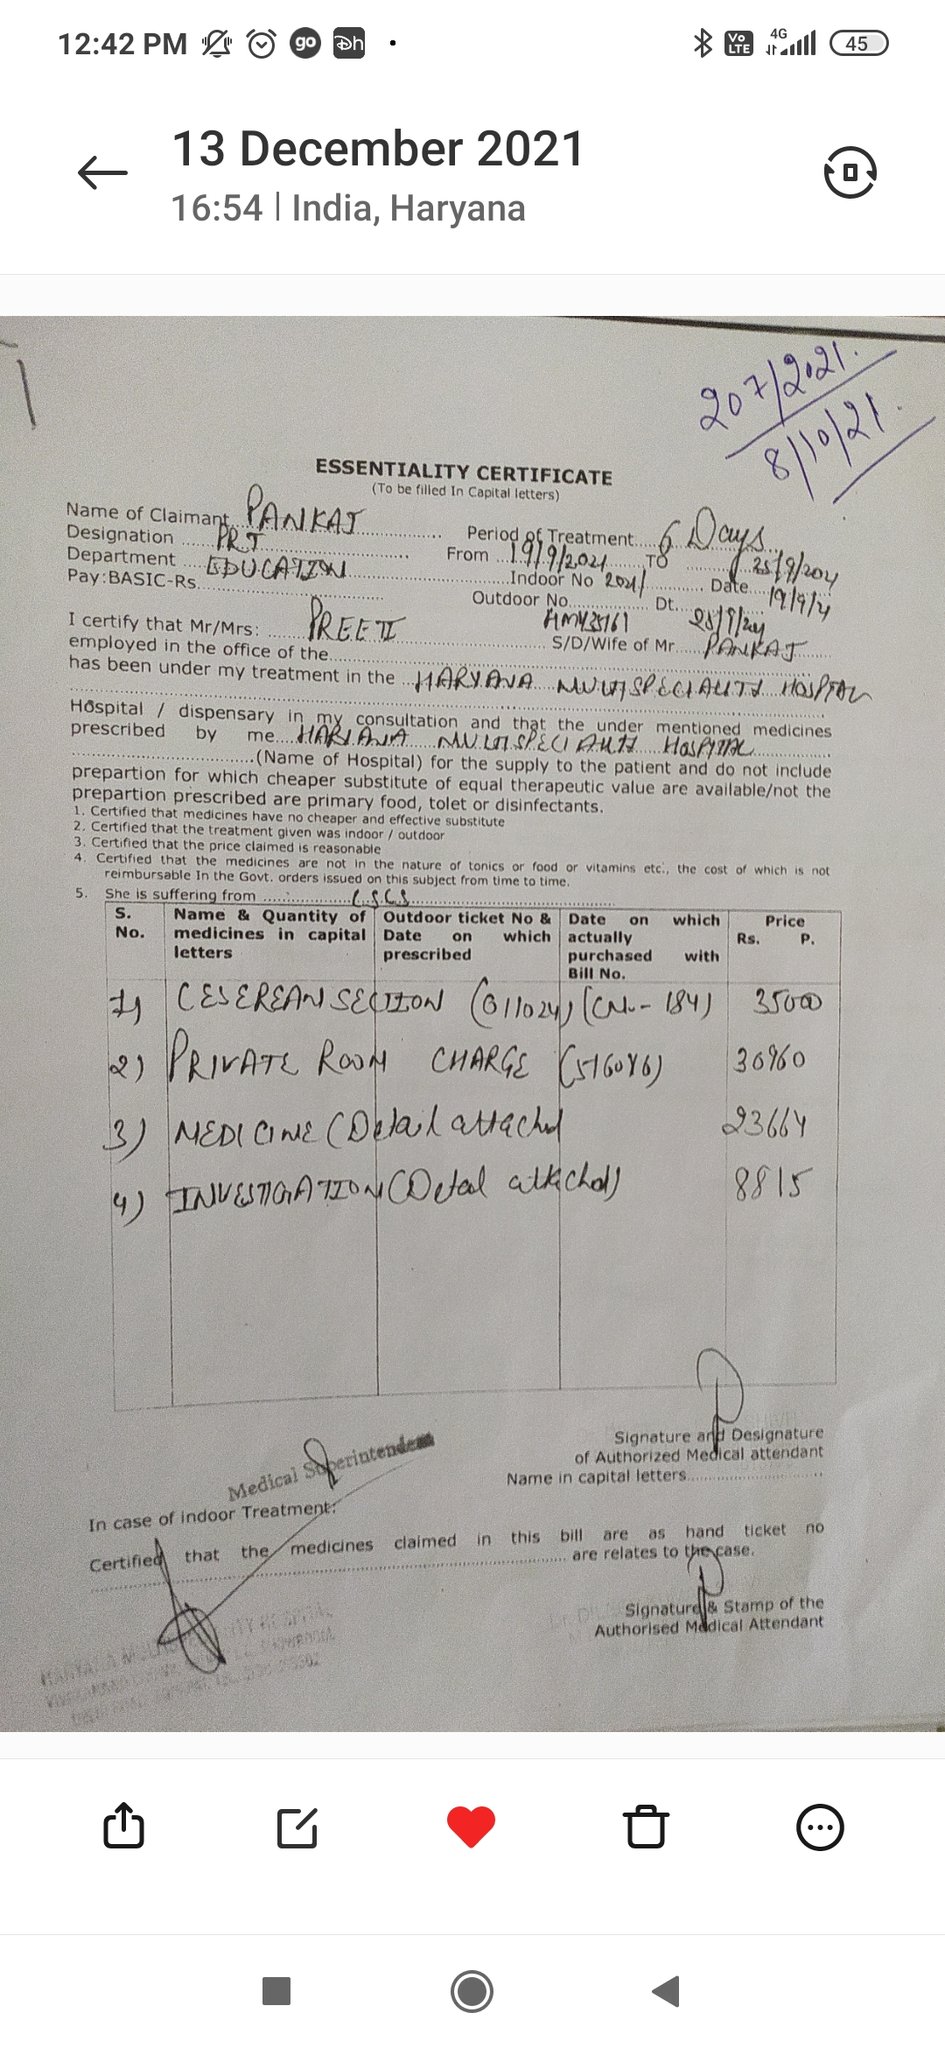 12:42 PM go Dh
Vo LTE 4G 45
13 December 2021
16:54 | India, Haryana
207/2021.
8/10/21.
ESSENTIALITY CERTIFICATE
(To be filled In Capital letters)
Name of Claimant PANKAJ
Period of Treatment 6 Days
Designation PRT
From 19/9/2021 TO 25/9/2021
Department EDUCATION
Indoor No 2021/ Date 19/9/21
Pay:BASIC-Rs.
Outdoor No. Dt.
I certify that Mr/Mrs: PREETI
S/D/Wife of Mr PANKAJ
employed in the office of the
has been under my treatment in the HARYANA MULTISPECIALITY HOSPITAL
Hospital / dispensary in my consultation and that the under mentioned medicines
prescribed by me HARYANA MULTISPECIALITY HOSPITAL
(Name of Hospital) for the supply to the patient and do not include
prepartion for which cheaper substitute of equal therapeutic value are available/not the
prepartion prescribed are primary food, tolet or disinfectants.
1. Certified that medicines have no cheaper and effective substitute
2. Certified that the treatment given was indoor / outdoor
3. Certified that the price claimed is reasonable
4. Certified that the medicines are not in the nature of tonics or food or vitamins etc., the cost of which is not
reimbursable In the Govt. orders issued on this subject from time to time.
5. She is suffering from LSCS
S. No. Name & Quantity of medicines in capital letters Outdoor ticket No & Date on which prescribed Date on which actually purchased with Bill No. Price Rs. P.
1) CESEREAN SECTION (011024) (CNo - 184) 35000
2) PRIVATE ROOM CHARGE 30960
3) MEDICINE (Detail attached 23664
4) INVESTIGATION (Detal attached) 8815
Signature and Designature
of Authorized Medical attendant
Name in capital letters
Medical Superintendent
In case of indoor Treatment:
Certified that the medicines claimed in this bill are as hand ticket no
are relates to the case.
Signature & Stamp of the
Authorised Medical Attendant